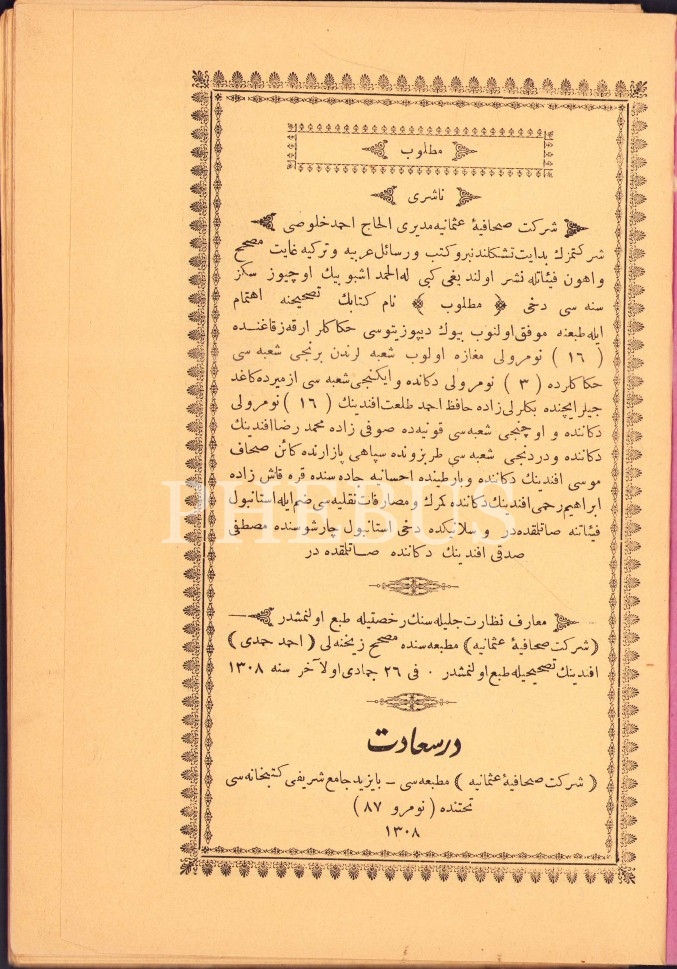 مطلوب
ناشری
شركت صحافیهٔ عثمانیه مدیری الحاج احمد خلوصی
شركتمزك بدایت تشكلندنبرو كتب و رسائل عربیه و تركیه غایت مصحح
واهون فیئاتله نشر اولندیغی كبی له الحمد اشبو بیك اوچیوز سكز
سنه سی دخی ﴿ مطلوب ﴾ نام كتابك تصحیحنه اهتمام
ایله طبعنه موفق اولنوب بیوك دیپوزیتوسی حكاكلر ارقه زقاغنده
( ١٦ ) نومرولی مغازه اولوب شعبه لرندن برنجی شعبه سی
حكاكلرده ( ٣ ) نومرولی دكانده و ایكنجی شعبه سی ازمیرده كاغد
جیلر ایچنده بكلرلی زاده حافظ احمد طلعت افندینك ( ١٦ ) نومرولی
دكاننده و اوچنجی شعبه سی قونیه ده صوفی زاده محمد رضا افندینك
دكاننده و دردنجی شعبه سی طربزونده سپاهی پازارنده كائن صحاف
موسی افندینك دكاننده و بارطینده احسانیه جاده سنده قره قاش زاده
ابراهیم رحمی افندینك دكاننده كمرك و مصارفات نقلیه سی ضم ایله استانبول
فیئاتنه صاتلقده در و سلانیكده دخی استانبول چارشوسنده مصطفی
صدقی افندینك دكاننده صاتلقده در
معارف نظارت جلیله سنك رخصتیله طبع اولنمشدر
( شركت صحافیهٔ عثمانیه ) مطبعه سنده مصحح زیخنه لی ( احمد حمدی )
افندینك تصحیحیله طبع اولنمشدر ٠ فی ٢٦ جمادی اولاآخر سنه ١٣٠٨
درسعادت
( شركت صحافیهٔ عثمانیه ) مطبعه سی – بایزید جامع شریفی كتبخانه سی
تحتنده ( نومرو ٨٧ )
١٣٠٨
PHEBUS